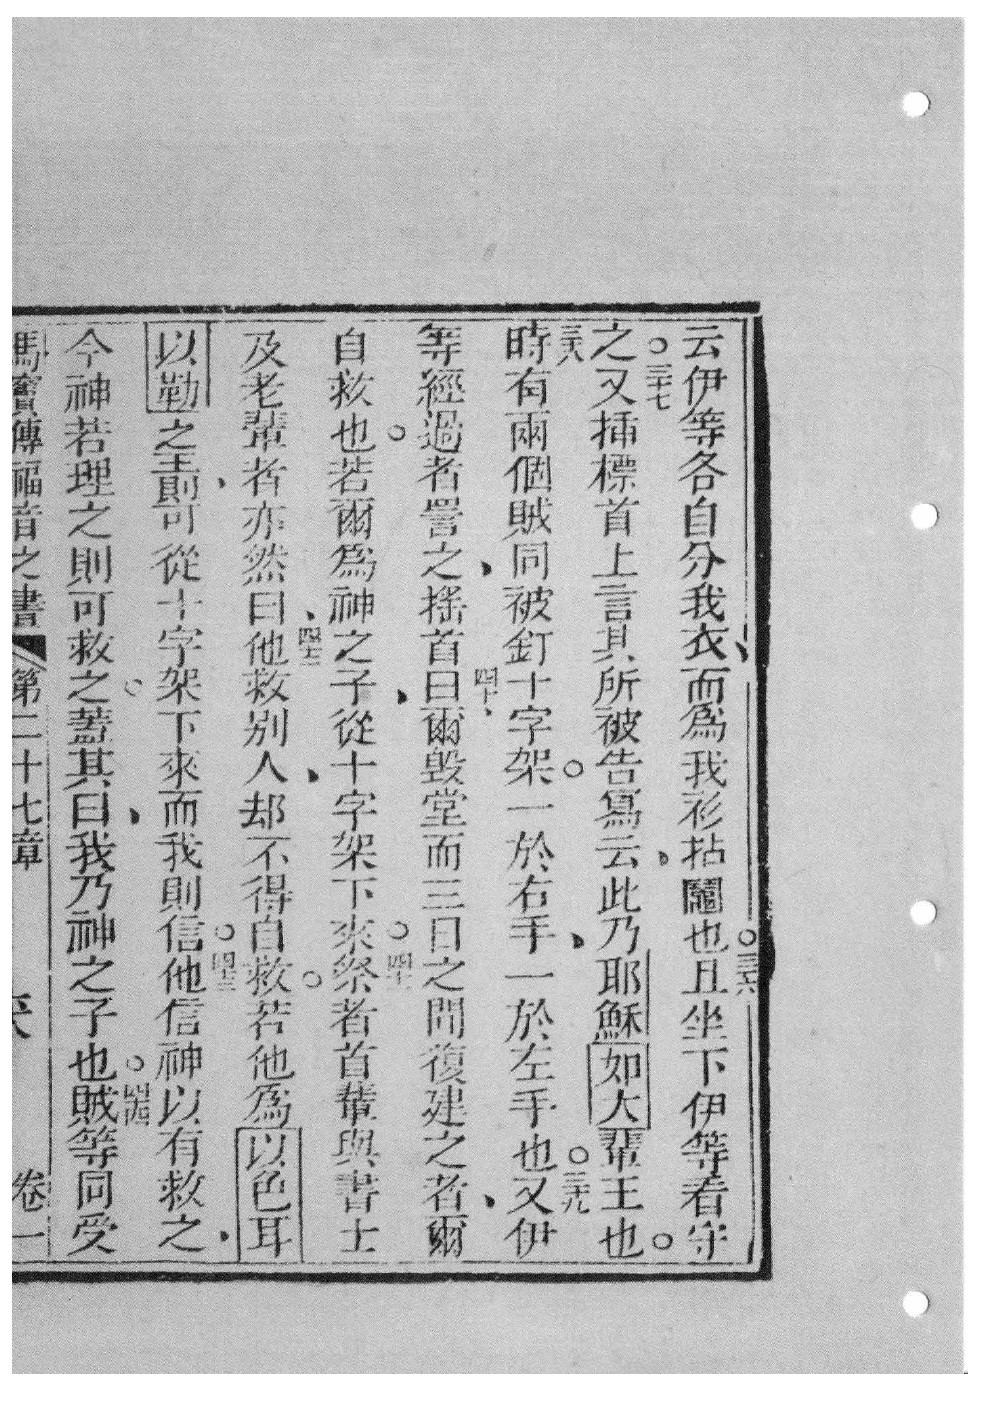 云伊等各自分我衣、而為我衫拈鬮也。三十六且坐下伊等看守
之。三十七又插標首上言其所被告寫云、此乃耶穌如大輩王也。
三十八時有兩個賊同被釘十字架。一於右手、一於左手也。三十九又伊
等經過者詈之、搖首四十曰、爾毀堂而三日之間復建之者、爾
自救也。若爾為神之子、從十字架下來。四十一祭者首輩與書士
及老輩者亦然曰、四十二他救別人、却不得自救。若他為以色耳
以勒之王、則可從十字架下來而我則信他。四十三信神以有救之、
今神若理之則可救之。蓋其曰、我乃神之子也。四十四賊等同受
馬竇傳福音之書 第二十七章 卷一